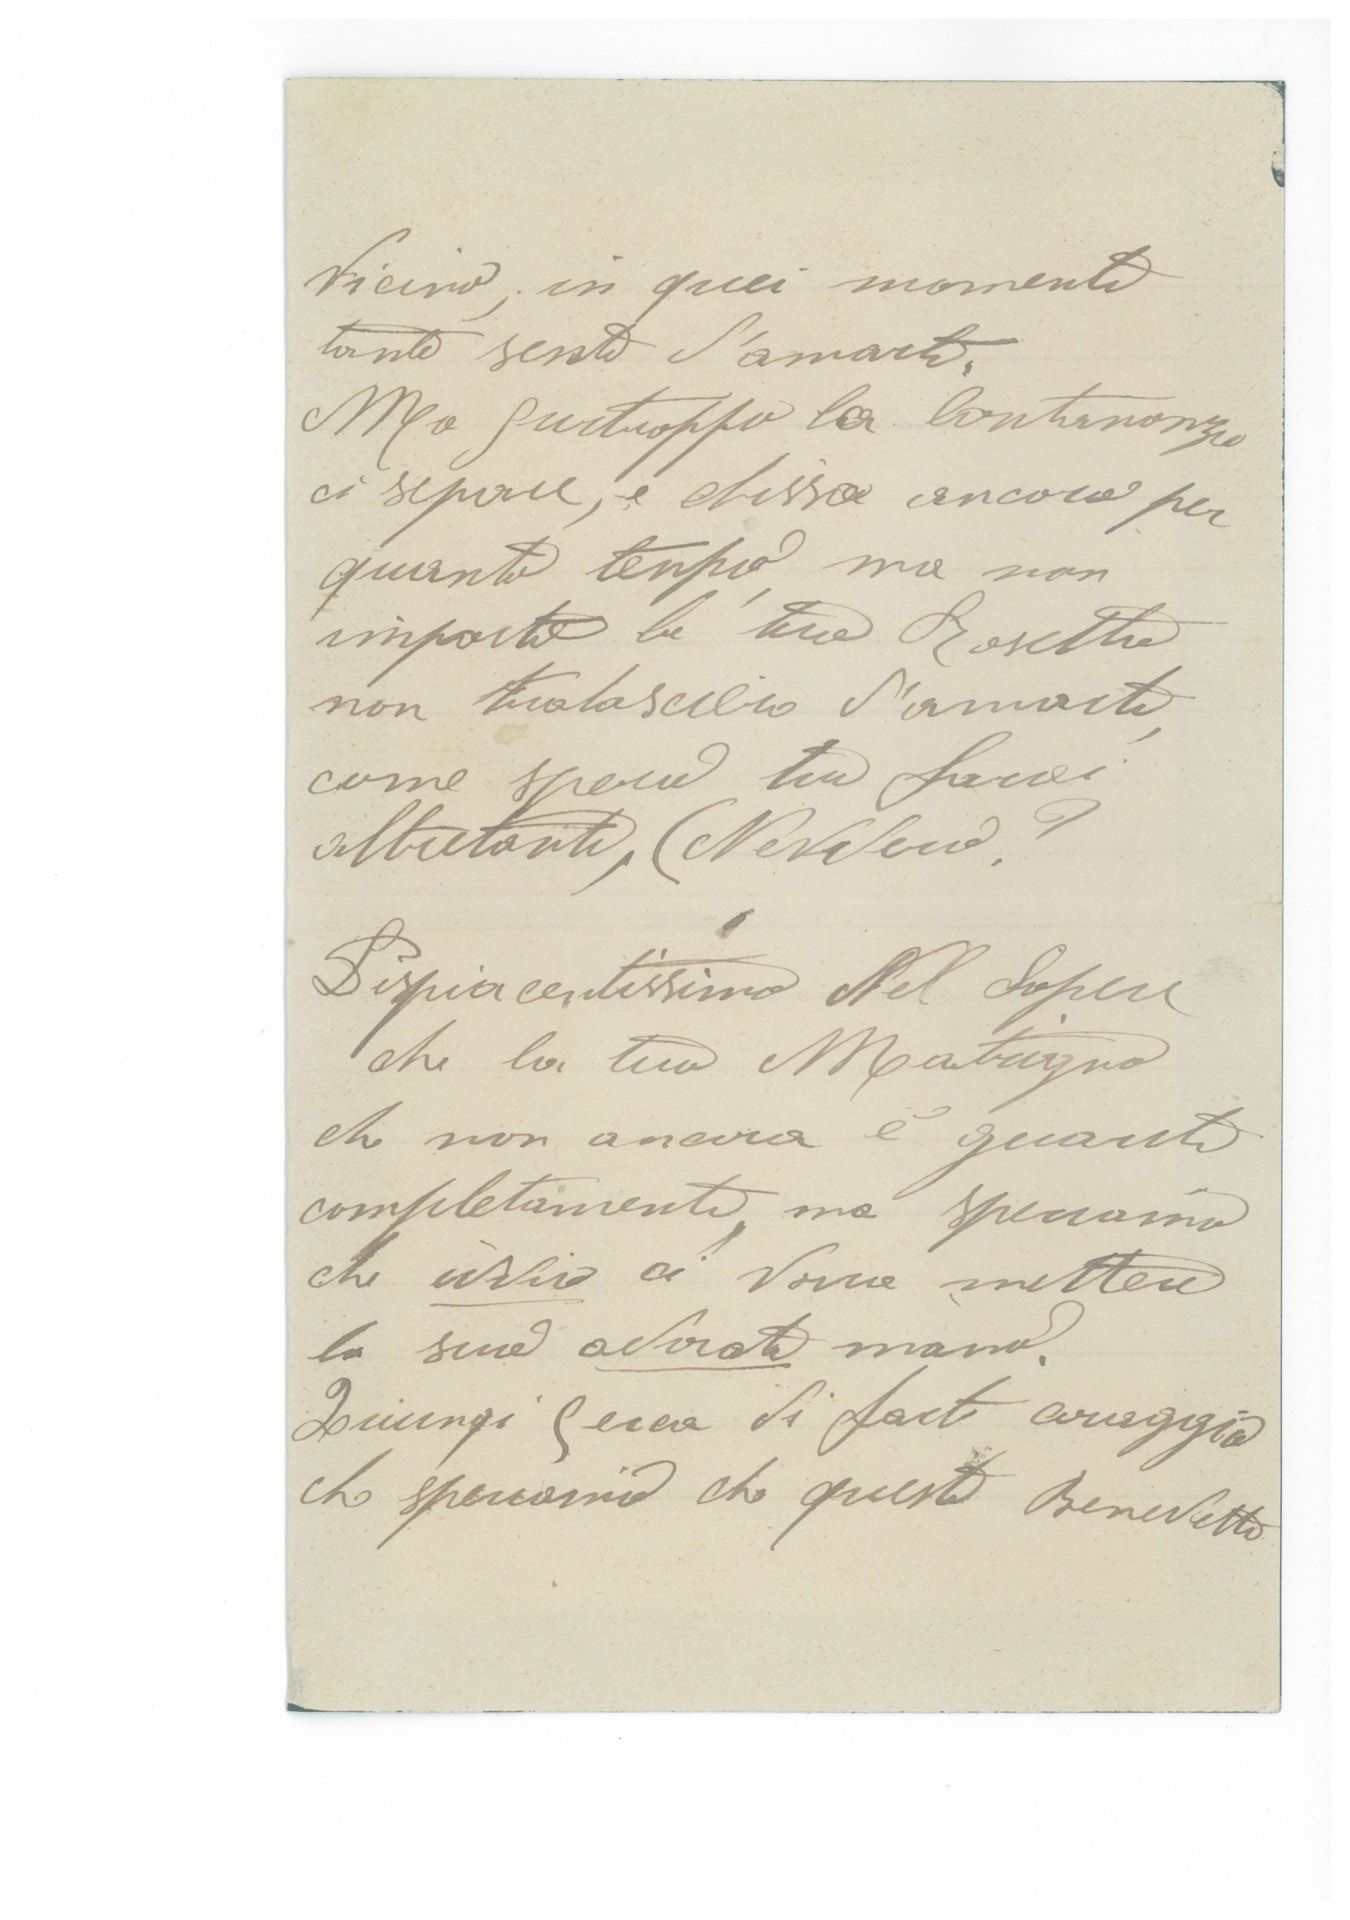 vicino, in quei momenti
tanto sento d'amarti.
Ma purtroppo la lontananza
ci separe, e chissa ancora per
quanto tempo, ma non
importa la tua Rosetta
non tralascierà d'amarti,
come spero tu farai
altretanto, (Nevvero?
Dispiacentissima Nel Sapere
che la tua Matrigna
che non ancora è guarita
completamente, ma speriamo
che iddio ci vorra mettere
la sua adorata mano.
cerca di farti coraggio
che speriamo che questo Benedetto